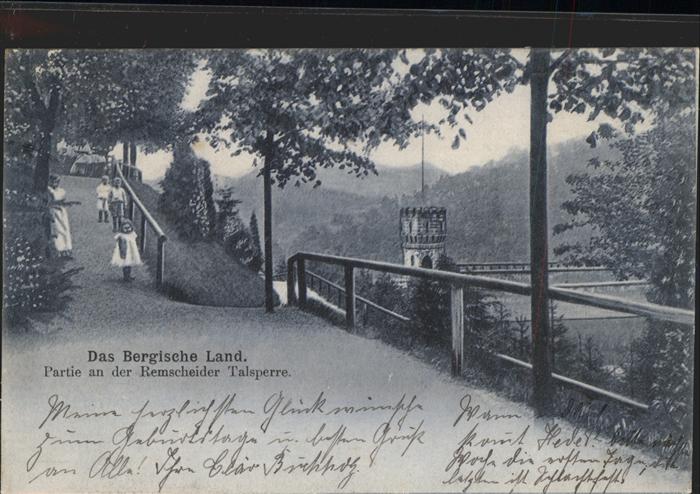 Das Bergische Land.
Partie an der Remscheider Talsperre.
Meine herzlichsten Glückwünsche
zum Geburtstage u. besten Gruß
an Alle! Ihre Clär Buchholz
Wann
kommt
Woche die ersten Tage, die
letzten ist Schlachtfest